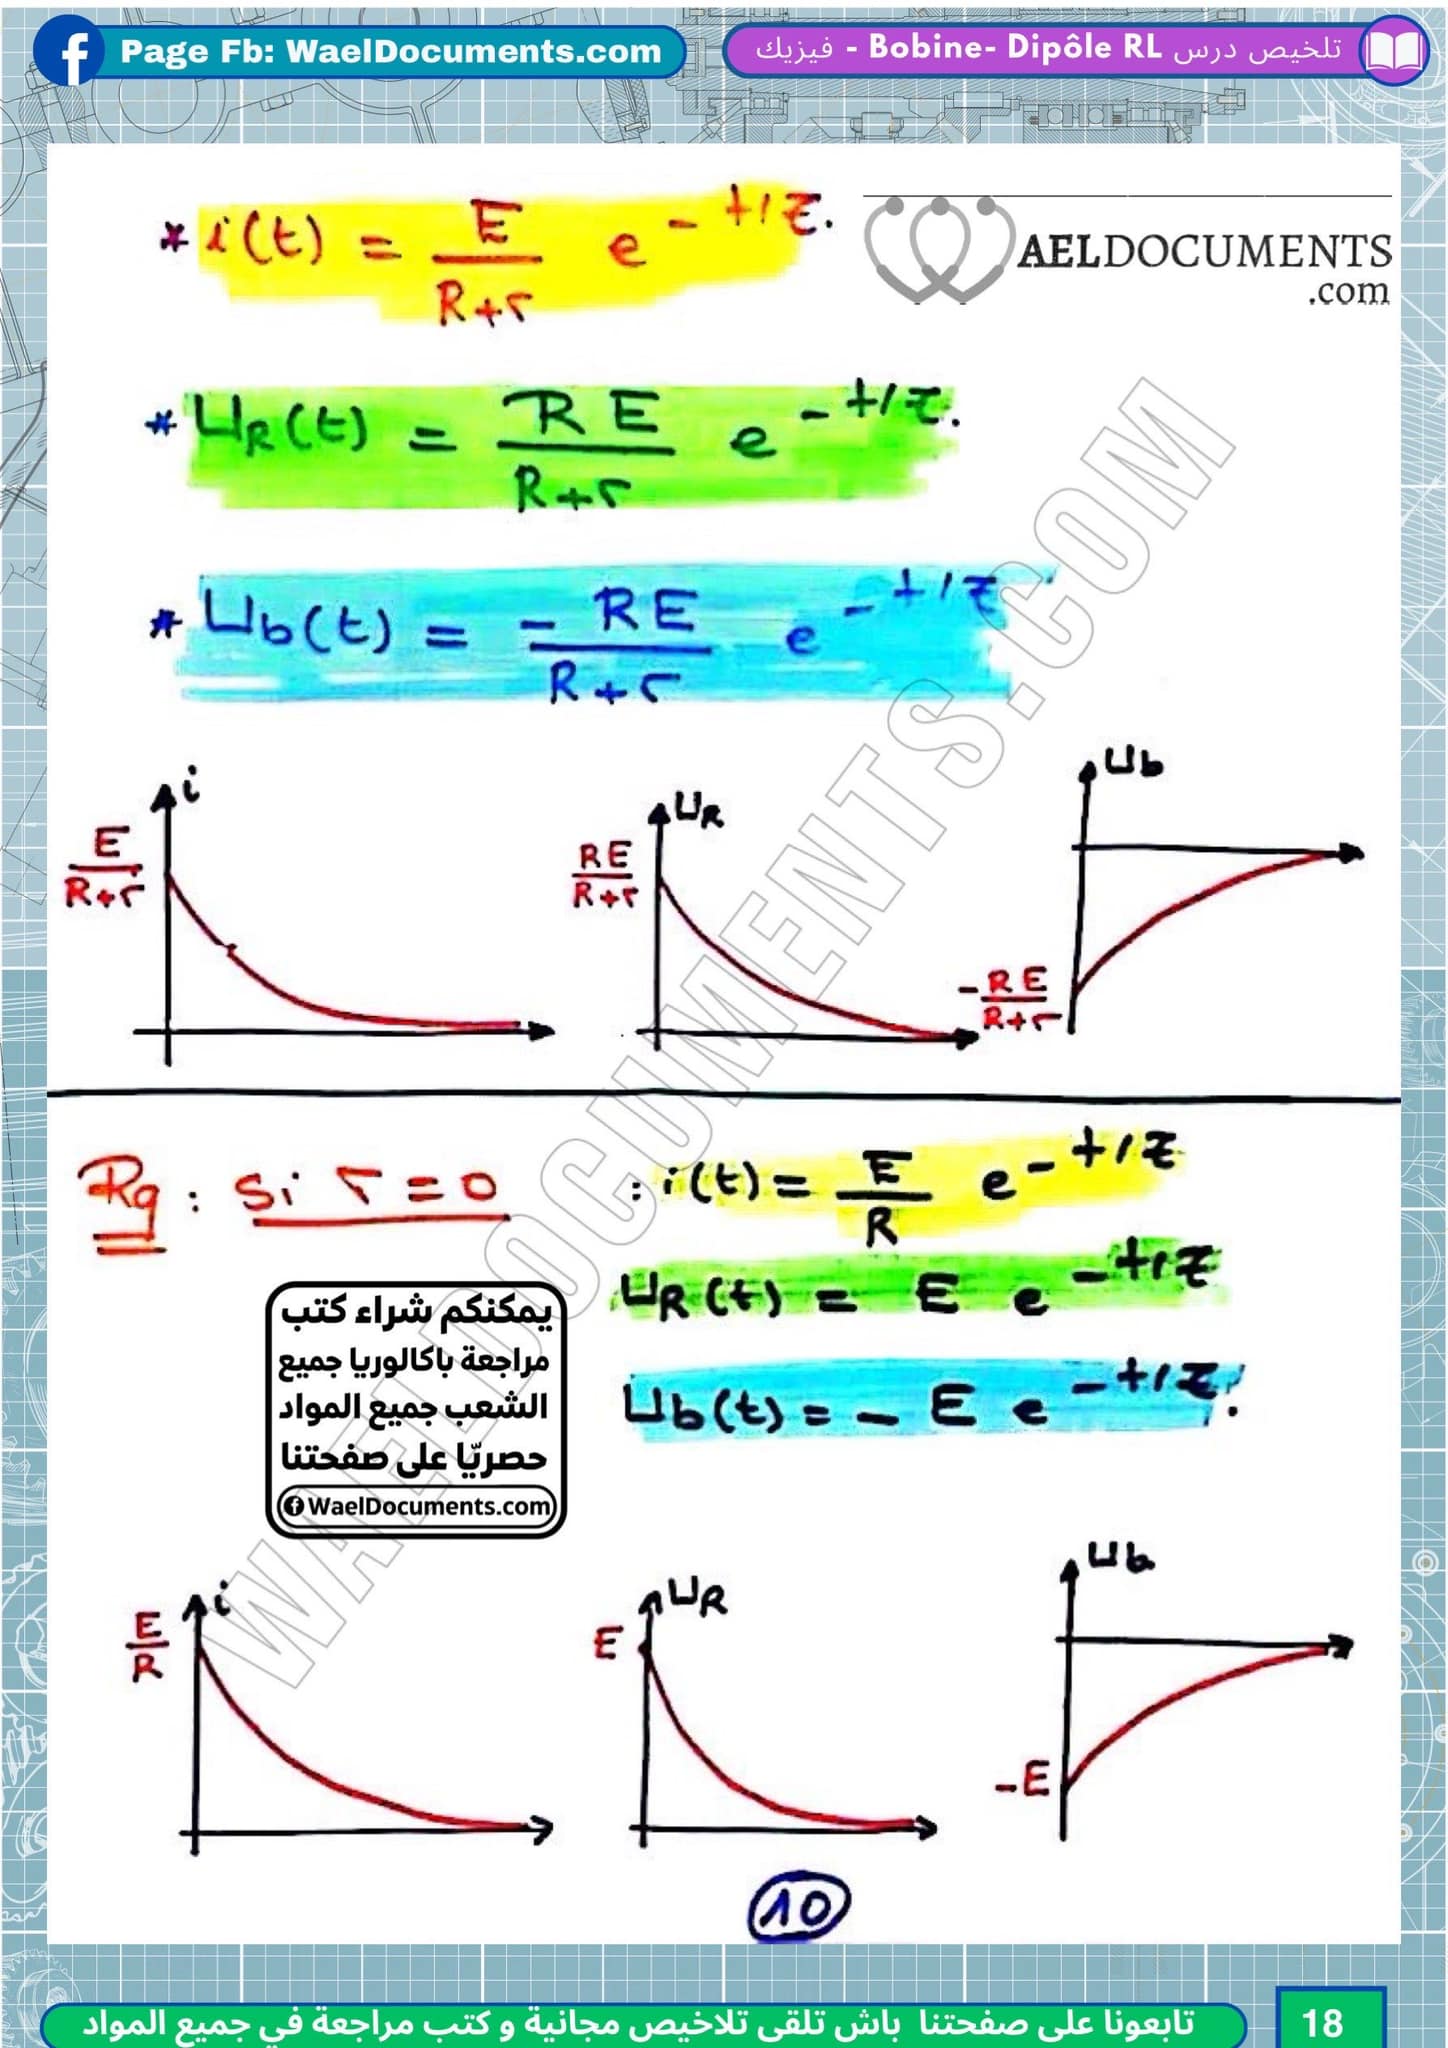 Page Fb: WaelDocuments.com
تلخيص درس Bobine- Dipôle RL - فيزيك
AELDOCUMENTS
.com
* i(t) = E/(R+r) e^-t/τ.
* UR(t) = RE/(R+r) e^-t/τ.
* Ub(t) = - RE/(R+r) e^-t/τ
i
E/(R+r)
UR
RE/(R+r)
Ub
-RE/(R+r)
Rq : si r = 0 : i(t) = E/R e^-t/τ
UR(t) = E e^-t/τ
Ub(t) = - E e^-t/τ.
يمكنكم شراء كتب
مراجعة باكالوريا جميع
الشعب جميع المواد
حصريّا على صفحتنا
WaelDocuments.com
i
E/R
UR
E
Ub
-E
10
WAELDOCUMENTS.COM
تابعونا على صفحتنا باش تلقى تلاخيص مجانية و كتب مراجعة في جميع المواد
18